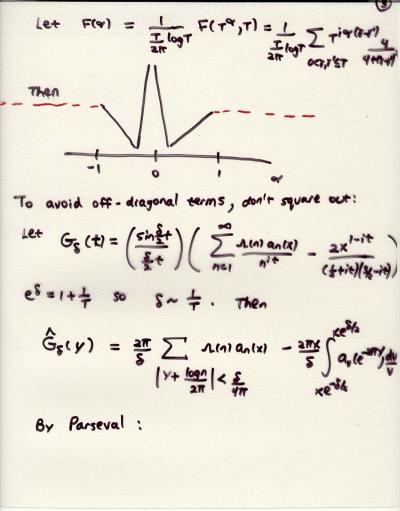 ③
Let F(α) = 1/(T/2π log T) F(T^α, T) = 1/(T/2π log T) ∑_{0<γ,γ'≤T} T^{iα(γ-γ')} 4/(4+(γ-γ')²)
Then
-1 0 1 α
To avoid off-diagonal terms, don't square out:
Let G_δ(t) = (sin δ/2 t / (δ/2 t)) ( ∑_{n=1}^∞ Λ(n) a_n(x) / n^{it} - 2x^{1-it} / ((1/2+it)(3/2-it)) )
e^δ = 1 + 1/T so δ ~ 1/T. Then
Ĝ_δ(y) = 2π/δ ∑_{|y + log n/2π| < δ/4π} Λ(n) a_n(x) - 2πx/δ ∫_{xe^{-δ/2}}^{xe^{δ/2}} dv/v
By Parseval: